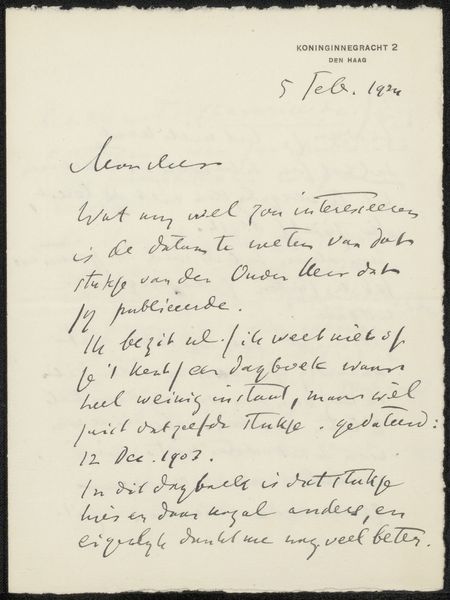 KONINGINNEGRACHT 2
DEN HAAG
5 Feb. 1924
Mon cher
Wat mij wel zou interesseeren
is de datum te weten van dat
stukje van den Ouden Heer dat
jij publiceerde.
Ik bezit nl. / ik weet niet of
je 't kent / een dagboek waarin
heel weinig in staat, maar wel
juist datzelfde stukje. gedateerd:
12 Dec. 1903.
In dit dagboek is dat stukje
hier en daar nogal anders, en
eigenlijk dunkt me nog veel beter.